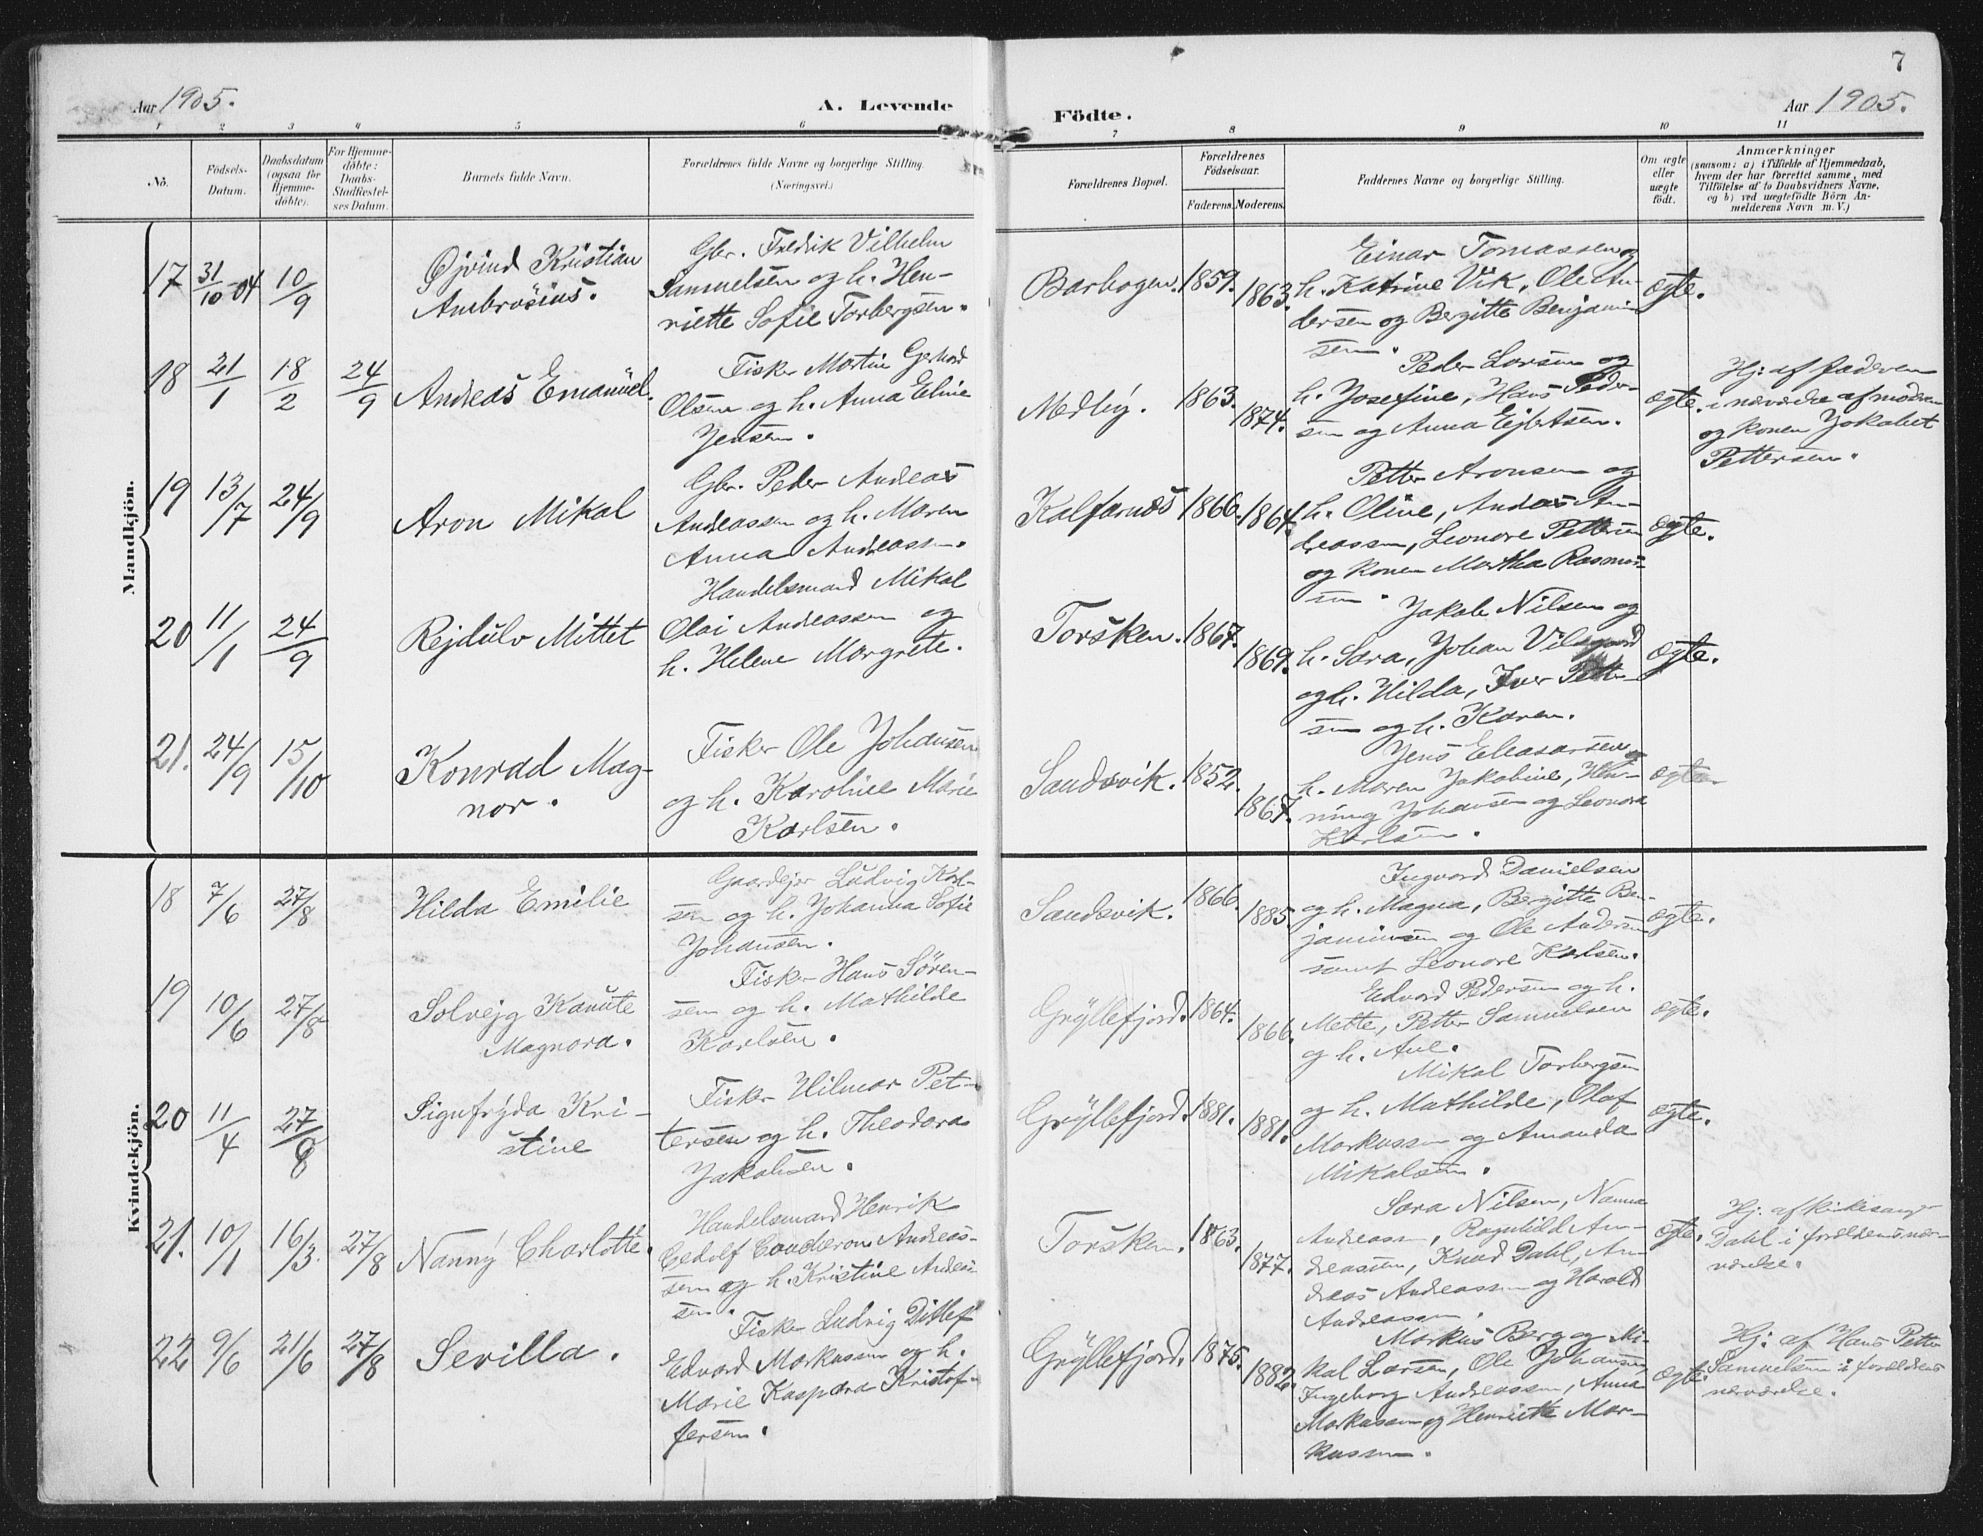 7
Aar 1905.
A. Levende
Födte.
Aar 1905.
1 2 3 4 5 6 7 8 9 10 11
No.
Födsels-
Datum.
Daabsdatum
(ogsaa for
Hjemme-
döbte).
For Hjemme-
döbte:
Daabs-
Stadfæstel-
ses Datum.
Barnets fulde Navn.
Forældrenes fulde Navne og borgerlige Stilling.
(Næringsvei.)
Forældrenes Bopæl.
Forældrenes
Födselsaar.
Faderens. Moderens.
Faddernes Navne og borgerlige Stilling.
Om ægte
eller
uægte
födt.
Anmærkninger
(saasom: a) i Tilfælde af Hjemmedaab,
hvem der har forrettet samme, med
Tilföielse af to Daabsvidners Navne,
og b) ved uægtefödte Börn An-
melderens Navn m. V.)
Mandkjön.
17 31/10-04 10/9
Øjvind Kristian
Ambrosius.
Gbr. Fredrik Vilhelm
Samuelsen og h. Hen-
riette Sofie Torbergsen.
Barbogen. 1859. 1863.
Einar Tomassen og
h. Katrine Vik, Ole An-
dersen og Bergitte Benjamin
sen.
ægte.
18 21/1 18/2 24/9
Andreas Emanuel.
Fisker Martin Gerhard
Olsen og h. Anna Eline
Jensen.
Medby. 1863. 1874.
Peder Larsen og
h. Josefine, Hans Peder-
sen og Anna Ejlertsen.
ægte.
Hj: af faderen
i nærværelse af moderen
og konen Jakobet
Pettersen.
19 13/7 24/9
Aron Mikal
Gbr. Peder Andreas
Andreassen og h. Maren
Anna Andreassen.
Kalfarnes 1866. 1864.
Petter Aronsen og
h. Oline, Andeas An-
dreassen, Leonore Pettersen
og konen Martha Rasmus-
sen.
ægte.
20 11/1 24/9
Rejdulv Mittet
Handelsmand Mikal
Olai Andreassen og
h. Helene Margrete.
Torsken. 1867. 1869.
Jakob Nilsen og
h. Sara, Johan
og h. Hilda, Iver Petter-
sen og h. Karen.
ægte.
21. 24/9 15/10
Konrad Mag-
nor.
Fisker Ole Johansen
og h. Karoline Marie
Karlsen.
Sandsvik. 1852. 1867.
Jens Eleasarsen og
h. Maren Jakobine, Hen-
ning Johansen og Leonora
Karlsen.
ægte
Kvindekjön.
18 7/6 27/8
Hilda Emilie
Gaardejer Ludvig Karl-
sen og h. Johanna Sofie
Johansen.
Sandsvik. 1866. 1885.
Ingvard Danielsen
og h. Magna, Bergitte Ben-
jaminsen og Ole Andersen
samt Leonore Karlsen.
ægte.
19 10/6 27/8
Solvejg Kanute
Magnora.
Fisker Hans Søren-
sen og h. Mathilde
Karlsen.
Gryllefjord. 1864. 1866.
Edvard Pedersen og h.
Mette, Petter Samuelsen
og h. Ane.
ægte.
20 11/4 27/8
Signfryda Kri-
stine
Fisker Hilmar Pet-
tersen og h. Theodora
Jakobsen.
Gryllefjord. 1881. 1881.
Mikal Torbergsen
og h. Mathilde, Olaf
Markussen og Amanda
Mikalsen.
ægte.
21. 10/1 16/3. 27/8
Nanny Charlotte.
Handelsmand Henrik
Andreas-
sen og h. Kristine Andeas
sen.
Torsken. 1863. 1877.
Sara Nilsen, Nanna
Andreassen, Ragnhild An-
dreassen, Knud Dahl, An-
dreas Andreassen og Harald
Andreassen.
ægte.
Hj: af kirkesanger
Dahl i forældrenes nær-
værelse.
22 9/6 21/6 27/8
Sevilla.
Fisker Ludvig Ditlef
Edvard Markussen og h.
Marie Kaspara Kristof-
fersen.
Gryllefjord. 1875. 1882.
Markus Berg og Mi-
kal Larsen, Ole Johansen,
Ingeborg Andreassen, Anna
Markussen og Henriette Mar-
kussen.
ægte.
Hj: af Hans Petter
Samuelsen i forældrenes
nærværelse.